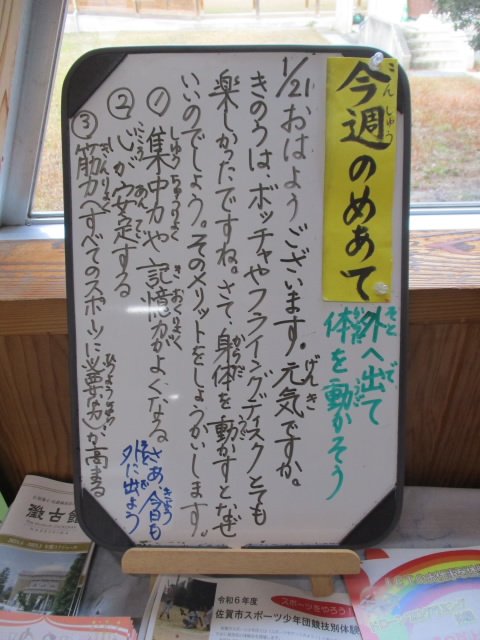 今週のめあて
こんしゅう
外へ出て
そと で
体を動かそう
1/21 おはようございます。元気ですか。
げんき
きのうは、ボッチャやフライングディスクとても
楽しかったですね。さて、身体を動かすとなぜ
からだ
いいのでしょう。そのメリットをしょうかいします。
① 集中力や記憶力がよくなる
しゅうちゅうりょく きおくりょく
② 心が安定する
③ 筋力(すべてのスポーツに必要な力)が高まる
きんりょく
さあ、今日も
きょう
外に出よう
令和6年度
スポーツをやろう
佐賀市スポーツ少年団競技別体
徴古館